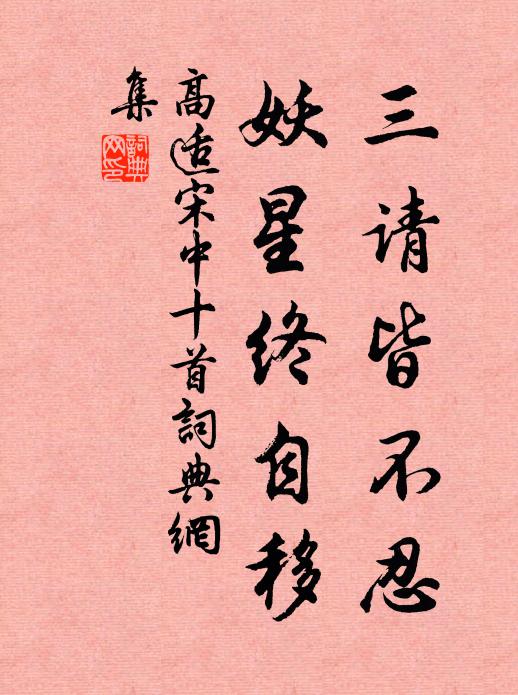 三请皆不忍
妖星终自移
高适宋中十首詞典網
集
詞典
网印